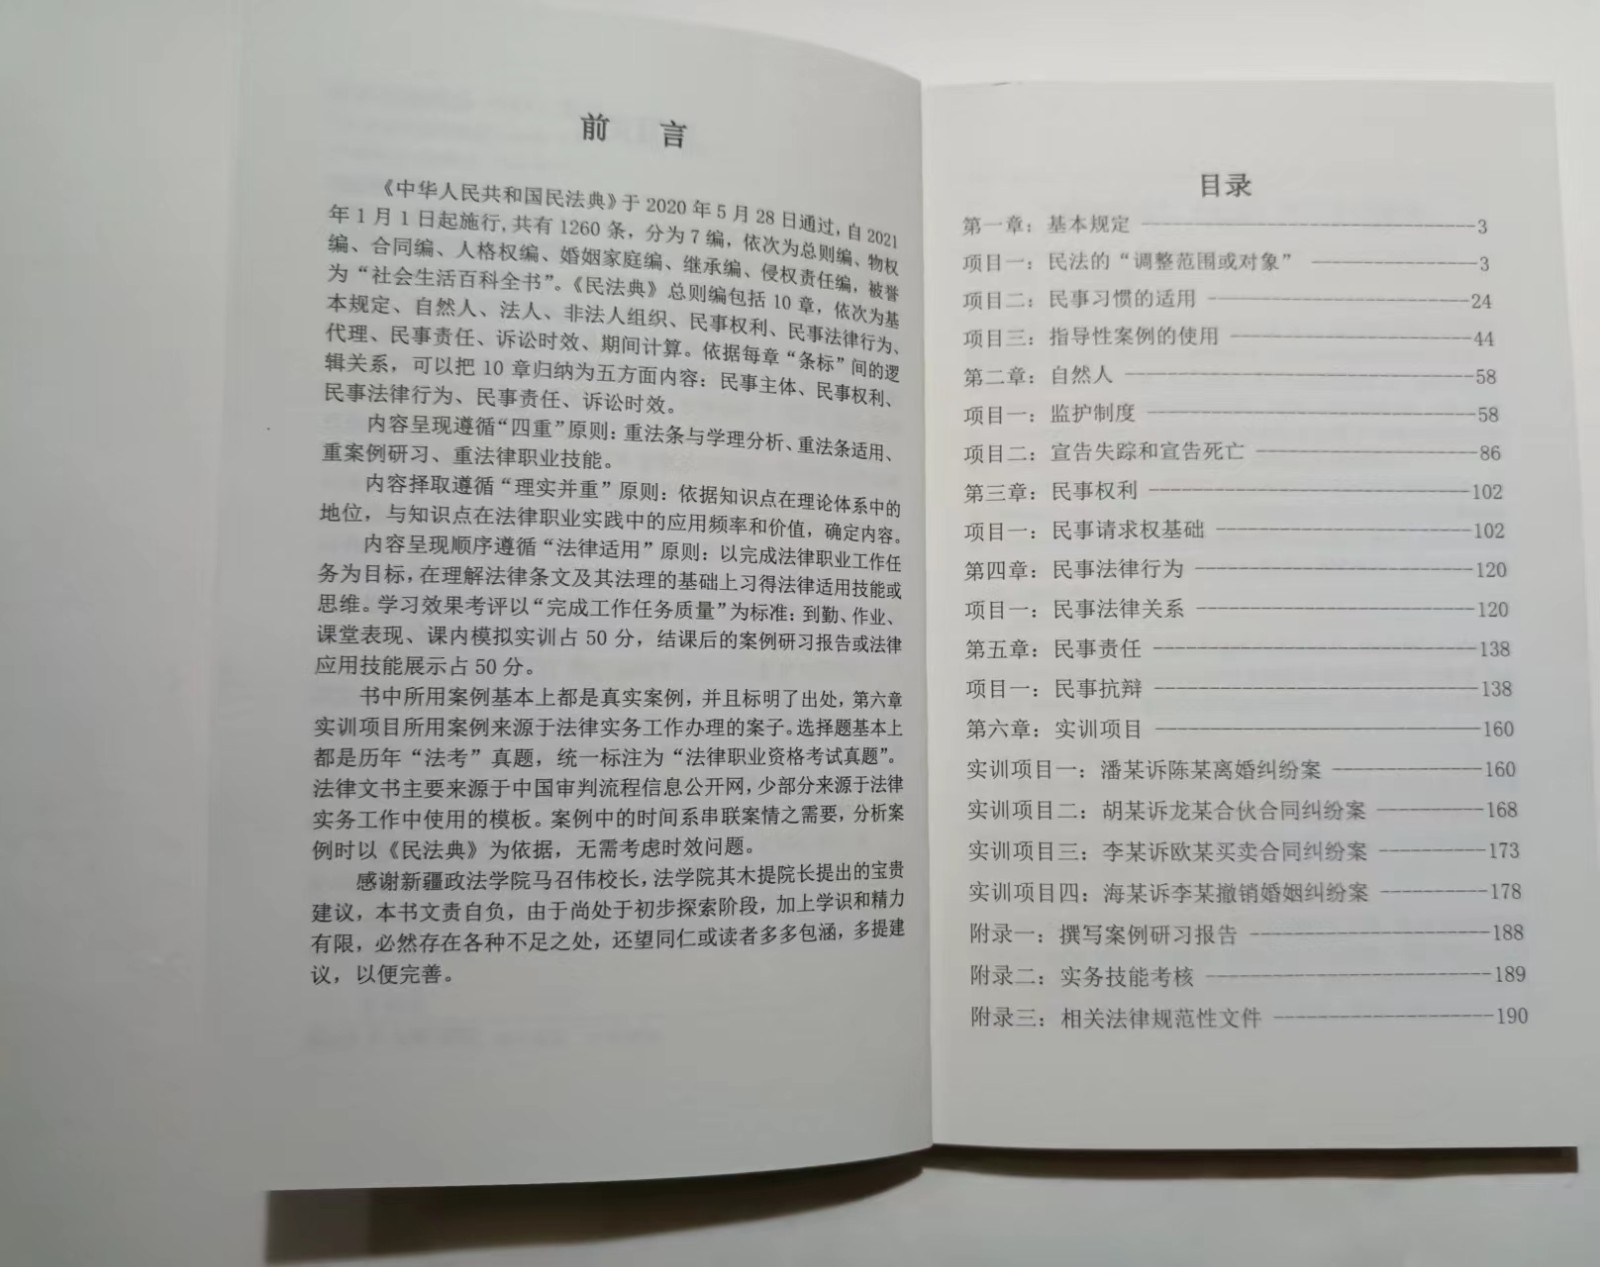 前 言
《中华人民共和国民法典》于 2020 年 5 月 28 日通过，自 2021
年 1 月 1 日起施行，共有 1260 条，分为 7 编，依次为总则编、物权
编、合同编、人格权编、婚姻家庭编、继承编、侵权责任编，被誉
为“社会生活百科全书”。《民法典》总则编包括 10 章，依次为基
本规定、自然人、法人、非法人组织、民事权利、民事法律行为、
代理、民事责任、诉讼时效、期间计算。依据每章“条标”间的逻
辑关系，可以把 10 章归纳为五方面内容：民事主体、民事权利、
民事法律行为、民事责任、诉讼时效。
内容呈现遵循“四重”原则：重法条与学理分析、重法条适用、
重案例研习、重法律职业技能。
内容择取遵循“理实并重”原则：依据知识点在理论体系中的
地位，与知识点在法律职业实践中的应用频率和价值，确定内容。
内容呈现顺序遵循“法律适用”原则：以完成法律职业工作任
务为目标，在理解法律条文及其法理的基础上习得法律适用技能或
思维。学习效果考评以“完成工作任务质量”为标准：到勤、作业、
课堂表现、课内模拟实训占 50 分，结课后的案例研习报告或法律
应用技能展示占 50 分。
书中所用案例基本上都是真实案例，并且标明了出处，第六章
实训项目所用案例来源于法律实务工作办理的案子。选择题基本上
都是历年“法考”真题，统一标注为“法律职业资格考试真题”。
法律文书主要来源于中国审判流程信息公开网，少部分来源于法律
实务工作中使用的模板。案例中的时间系串联案情之需要，分析案
例时以《民法典》为依据，无需考虑时效问题。
感谢新疆政法学院马召伟校长，法学院其木提院长提出的宝贵
建议，本书文责自负，由于尚处于初步探索阶段，加上学识和精力
有限，必然存在各种不足之处，还望同仁或读者多多包涵，多提建
议，以便完善。
目录
第一章：基本规定 3
项目一：民法的“调整范围或对象” 3
项目二：民事习惯的适用 24
项目三：指导性案例的使用 44
第二章：自然人 58
项目一：监护制度 58
项目二：宣告失踪和宣告死亡 86
第三章：民事权利 102
项目一：民事请求权基础 102
第四章：民事法律行为 120
项目一：民事法律关系 120
第五章：民事责任 138
项目一：民事抗辩 138
第六章：实训项目 160
实训项目一：潘某诉陈某离婚纠纷案 160
实训项目二：胡某诉龙某合伙合同纠纷案 168
实训项目三：李某诉欧某买卖合同纠纷案 173
实训项目四：海某诉李某撤销婚姻纠纷案 178
附录一：撰写案例研习报告 188
附录二：实务技能考核 189
附录三：相关法律规范性文件 190